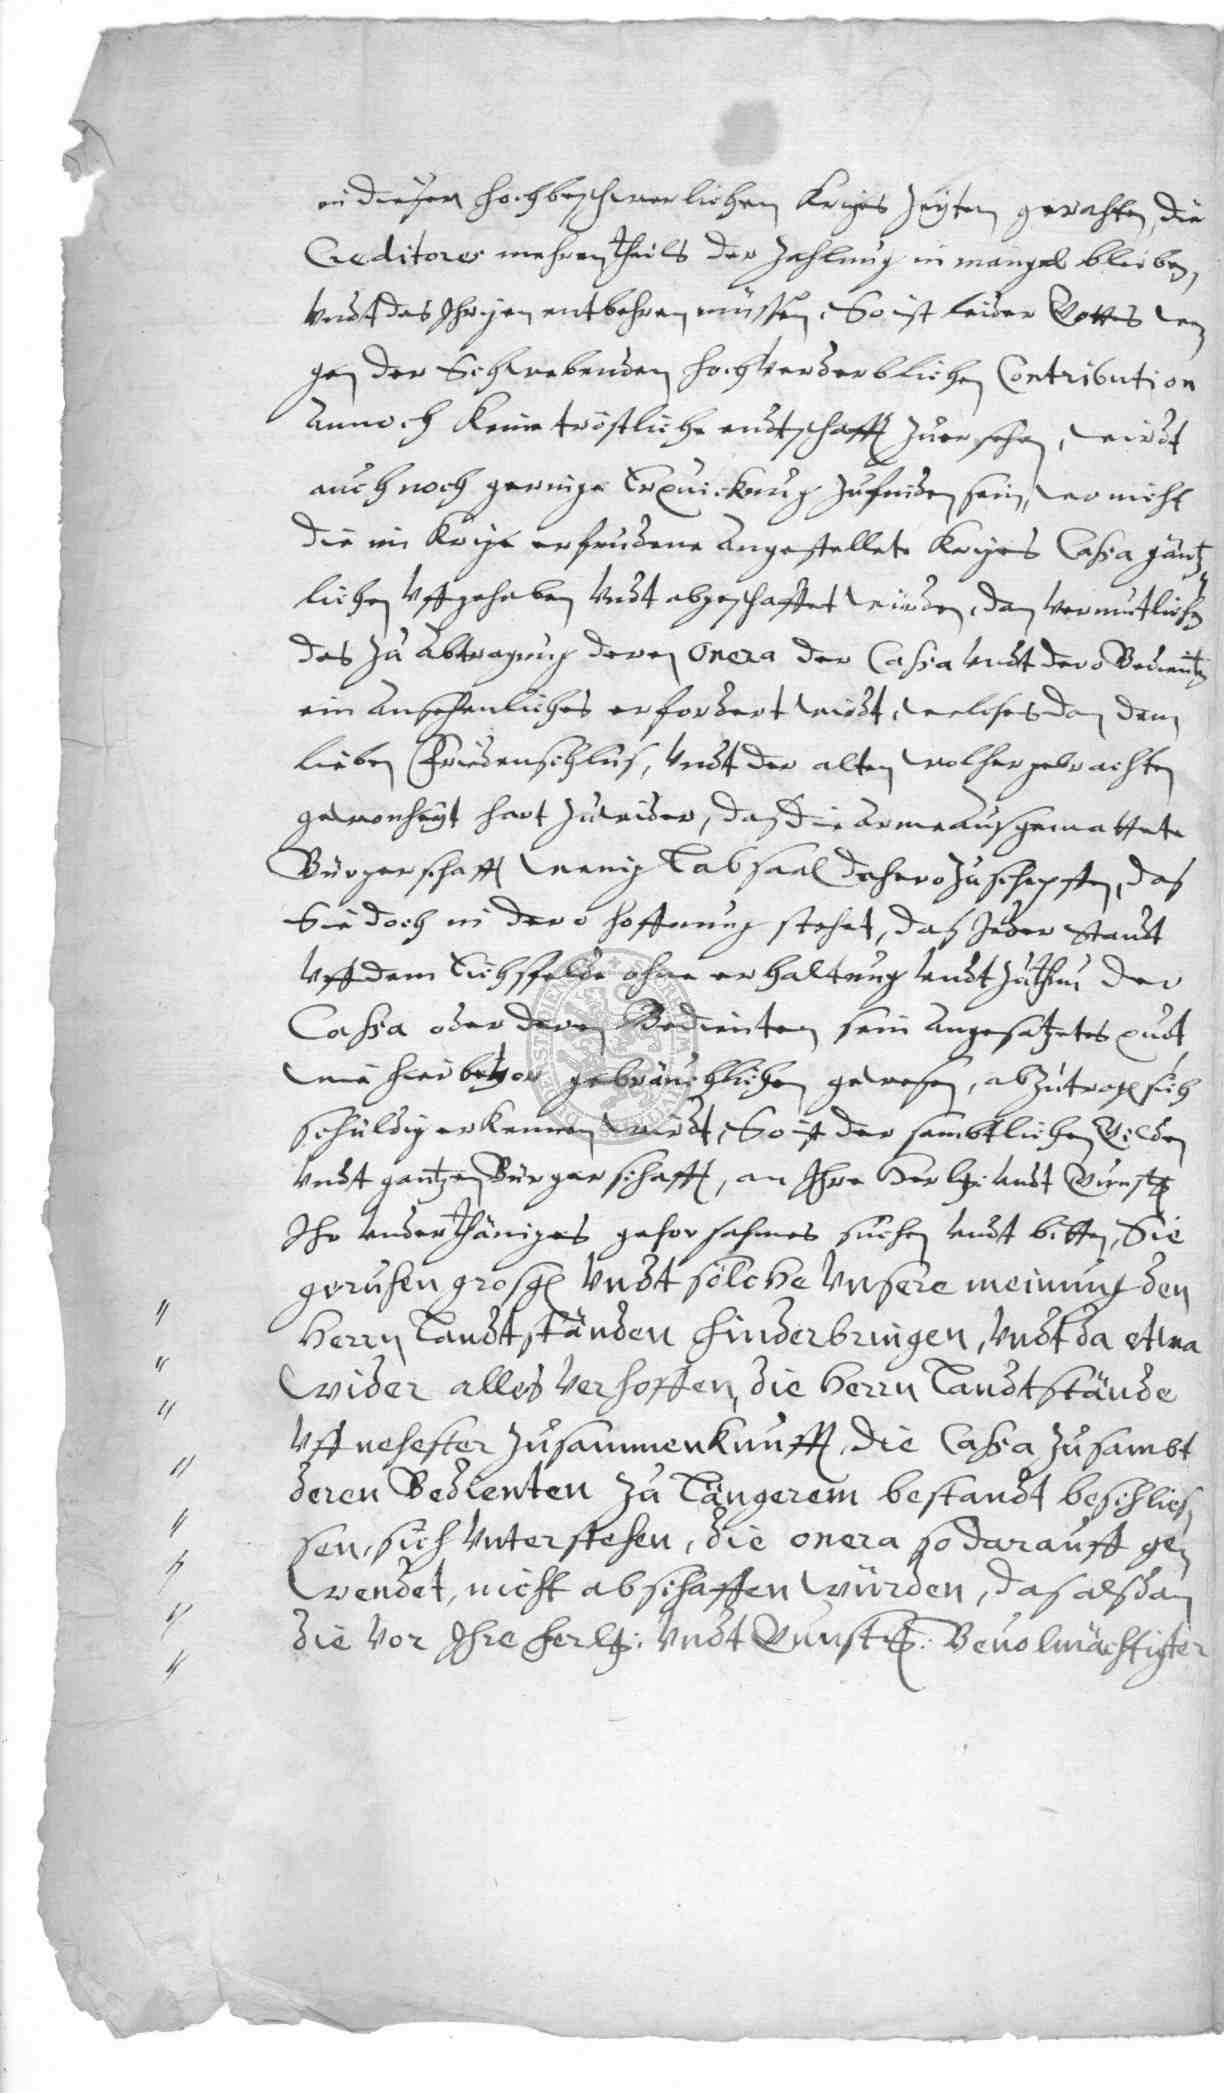 in diesen hochbeschwerlichen Kriges Zeyten gerahten, die
Creditores mehrentheils der Zahlung in mangel bleiben,
Undt das Ihrigen entbehren müssen, So ist leider Gottes we
gen der Schwebenden hochverderblichen Contribution
Annoch Keine tröstliche endtschafft Zuersehen, wirdt
auch noch geringe Erquickung Zufinden sein, wo nicht
die im Krige erfundene Angestellete Kriges Cassa gäntz
lichen Uffgehaben Undt abgeschaffet würden, dan vermutlichen
das Zu Abtragung deren Onera der Cassa Undt dero Bedienten
ein Ansehenliches erfordert wirdt, welches dan dem
lieben Friedenschlus, Undt der alten wolhergebrachten
gewonheyt hart Zuwider, das die arme ausgemattete
Bürgerschafft wenig Labsaal dahero Zuschepffen, das
Sie doch in dero hoffnung stehet, das Jeder Standt
Uff dem Eichsfelde ohne erhaltung Undt Zuthun der
Cassa oder deren Bedienten sein Angesatzetes
wie hierbevor gebräuchlichen gewesen, abzutragen sich
schuldig erkennen wirdt, So ist der sambtlichen Gilden
Undt gantzen Bürgerschafft, an Ihre herlg: Undt Gunstg:
Ihr Underthäniges gehorsahmes suchen Undt bitten, Sie
geruhen grosg: Undt solche Unsere meinung den
Herrn Landtständen hinderbringen, Undt da etwa
wider alles Verhoffen, die Herrn Landtstände
Uff nehester Zusammenkunfft, die Cassa Zusambt
deren Bedienten Zu Längerem bestandt beschlies
sen, sich Unterstehen, die onera so darauff ge
wendet, nicht abschaffen würden, das alsdan
die Vor Ihre herlg: Undt Gunstg: Bevolmächtigter